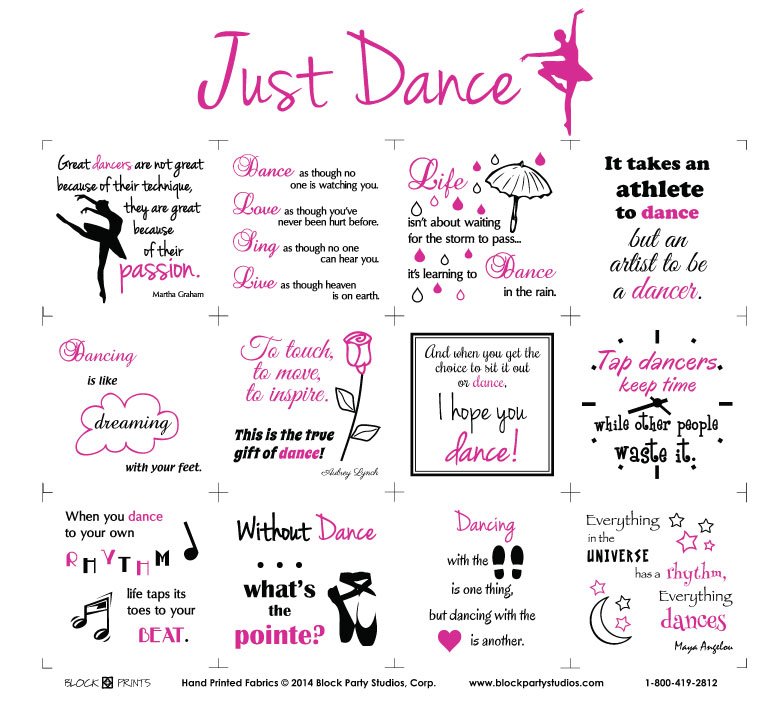 Just Dance
Great dancers are not great
because of their technique,
they are great
because
of their
passion.
Martha Graham
Dance as though no
one is watching you.
Love as though you've
never been hurt before.
Sing as though no one
can hear you.
Live as though heaven
is on earth.
Life
isn't about waiting
for the storm to pass...
it's learning to Dance
in the rain.
It takes an
athlete
to dance
but an
artist to be
a dancer.
Dancing
is like
dreaming
with your feet.
To touch,
to move,
to inspire.
This is the true
gift of dance!
Aubrey Lynch
And when you get the
choice to sit it out
or dance,
I hope you
dance!
Tap dancers
keep time
while other people
waste it.
When you dance
to your own
RHYTHM
life taps its
toes to your
BEAT.
Without Dance
...
what's
the
pointe?
Dancing
with the
is one thing,
but dancing with the
is another.
Everything
in the
UNIVERSE
has a rhythm,
Everything
dances
Maya Angelou
BLOCK PRINTS
Hand Printed Fabrics © 2014 Block Party Studios, Corp.
www.blockpartystudios.com
1-800-419-2812